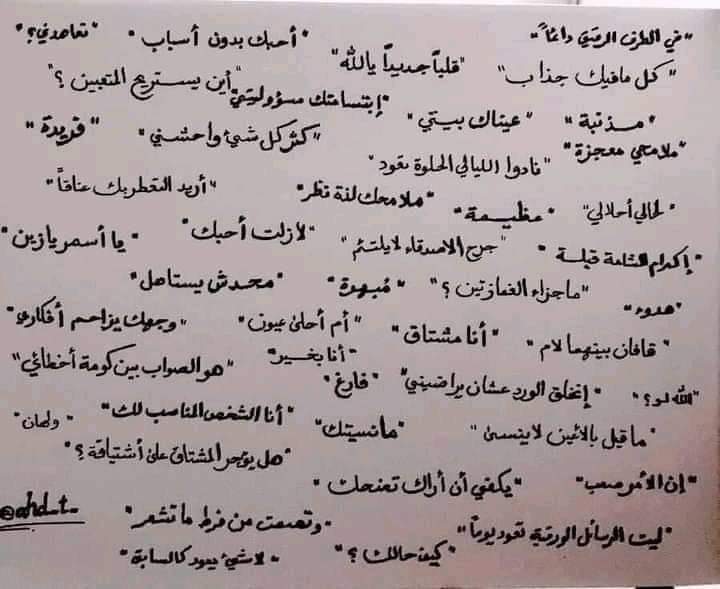 "في الطرف الرمزي دائماً" "أحبك بدون أسباب" "تعاهدني؟"
"كل مافيك جذاب" "قلباً جديداً يالله" "أين يستريح المتعبين؟"
"مذنبة" "عيناك بيتي" "إبتسامتك مسؤوليتي"
"ملامحي معجزة" "نادوا الليالي الحلوة تعود" "كثر كل شيء واحشني" "فريدة"
"لحالي أحلالي" "عظيمة" "ملامحك لفتة نظر" "أريد التعطر بك عناقاً"
"إكرام الشامة قبلة" "جرح الاصدقاء لايلتئم" "لازلت أحبك" "يا أسمر يازين"
"هدوء" "ماجزاء الغمازتين؟" "مُبهرة" "محدش يستاهل"
"قافان بينهما لام" "أنا مشتاق" "أم أحلى عيون" "وجهك يزاحم أفكاري"
"الله لو؟" "إتخلق الورد عشان يراضيني" "فارغ" "أنا بخير" "هو الصواب بين كومة أخطائي"
"ما قيل بالأعين لاينسى" "مانسيتك" "أنا الشخص المناسب لك" "ولهان"
"هل يؤجر المشتاق على أشتياقة؟"
"إن الأمر صعب" "يكفي أن أراك تضحك"
"ليت الرسائل الورقية تعود يوماً" "وتصمت من فرط ما تشعر" @ahd_t_
"كيف حالك؟" "لاشيء يعود كالسابق"